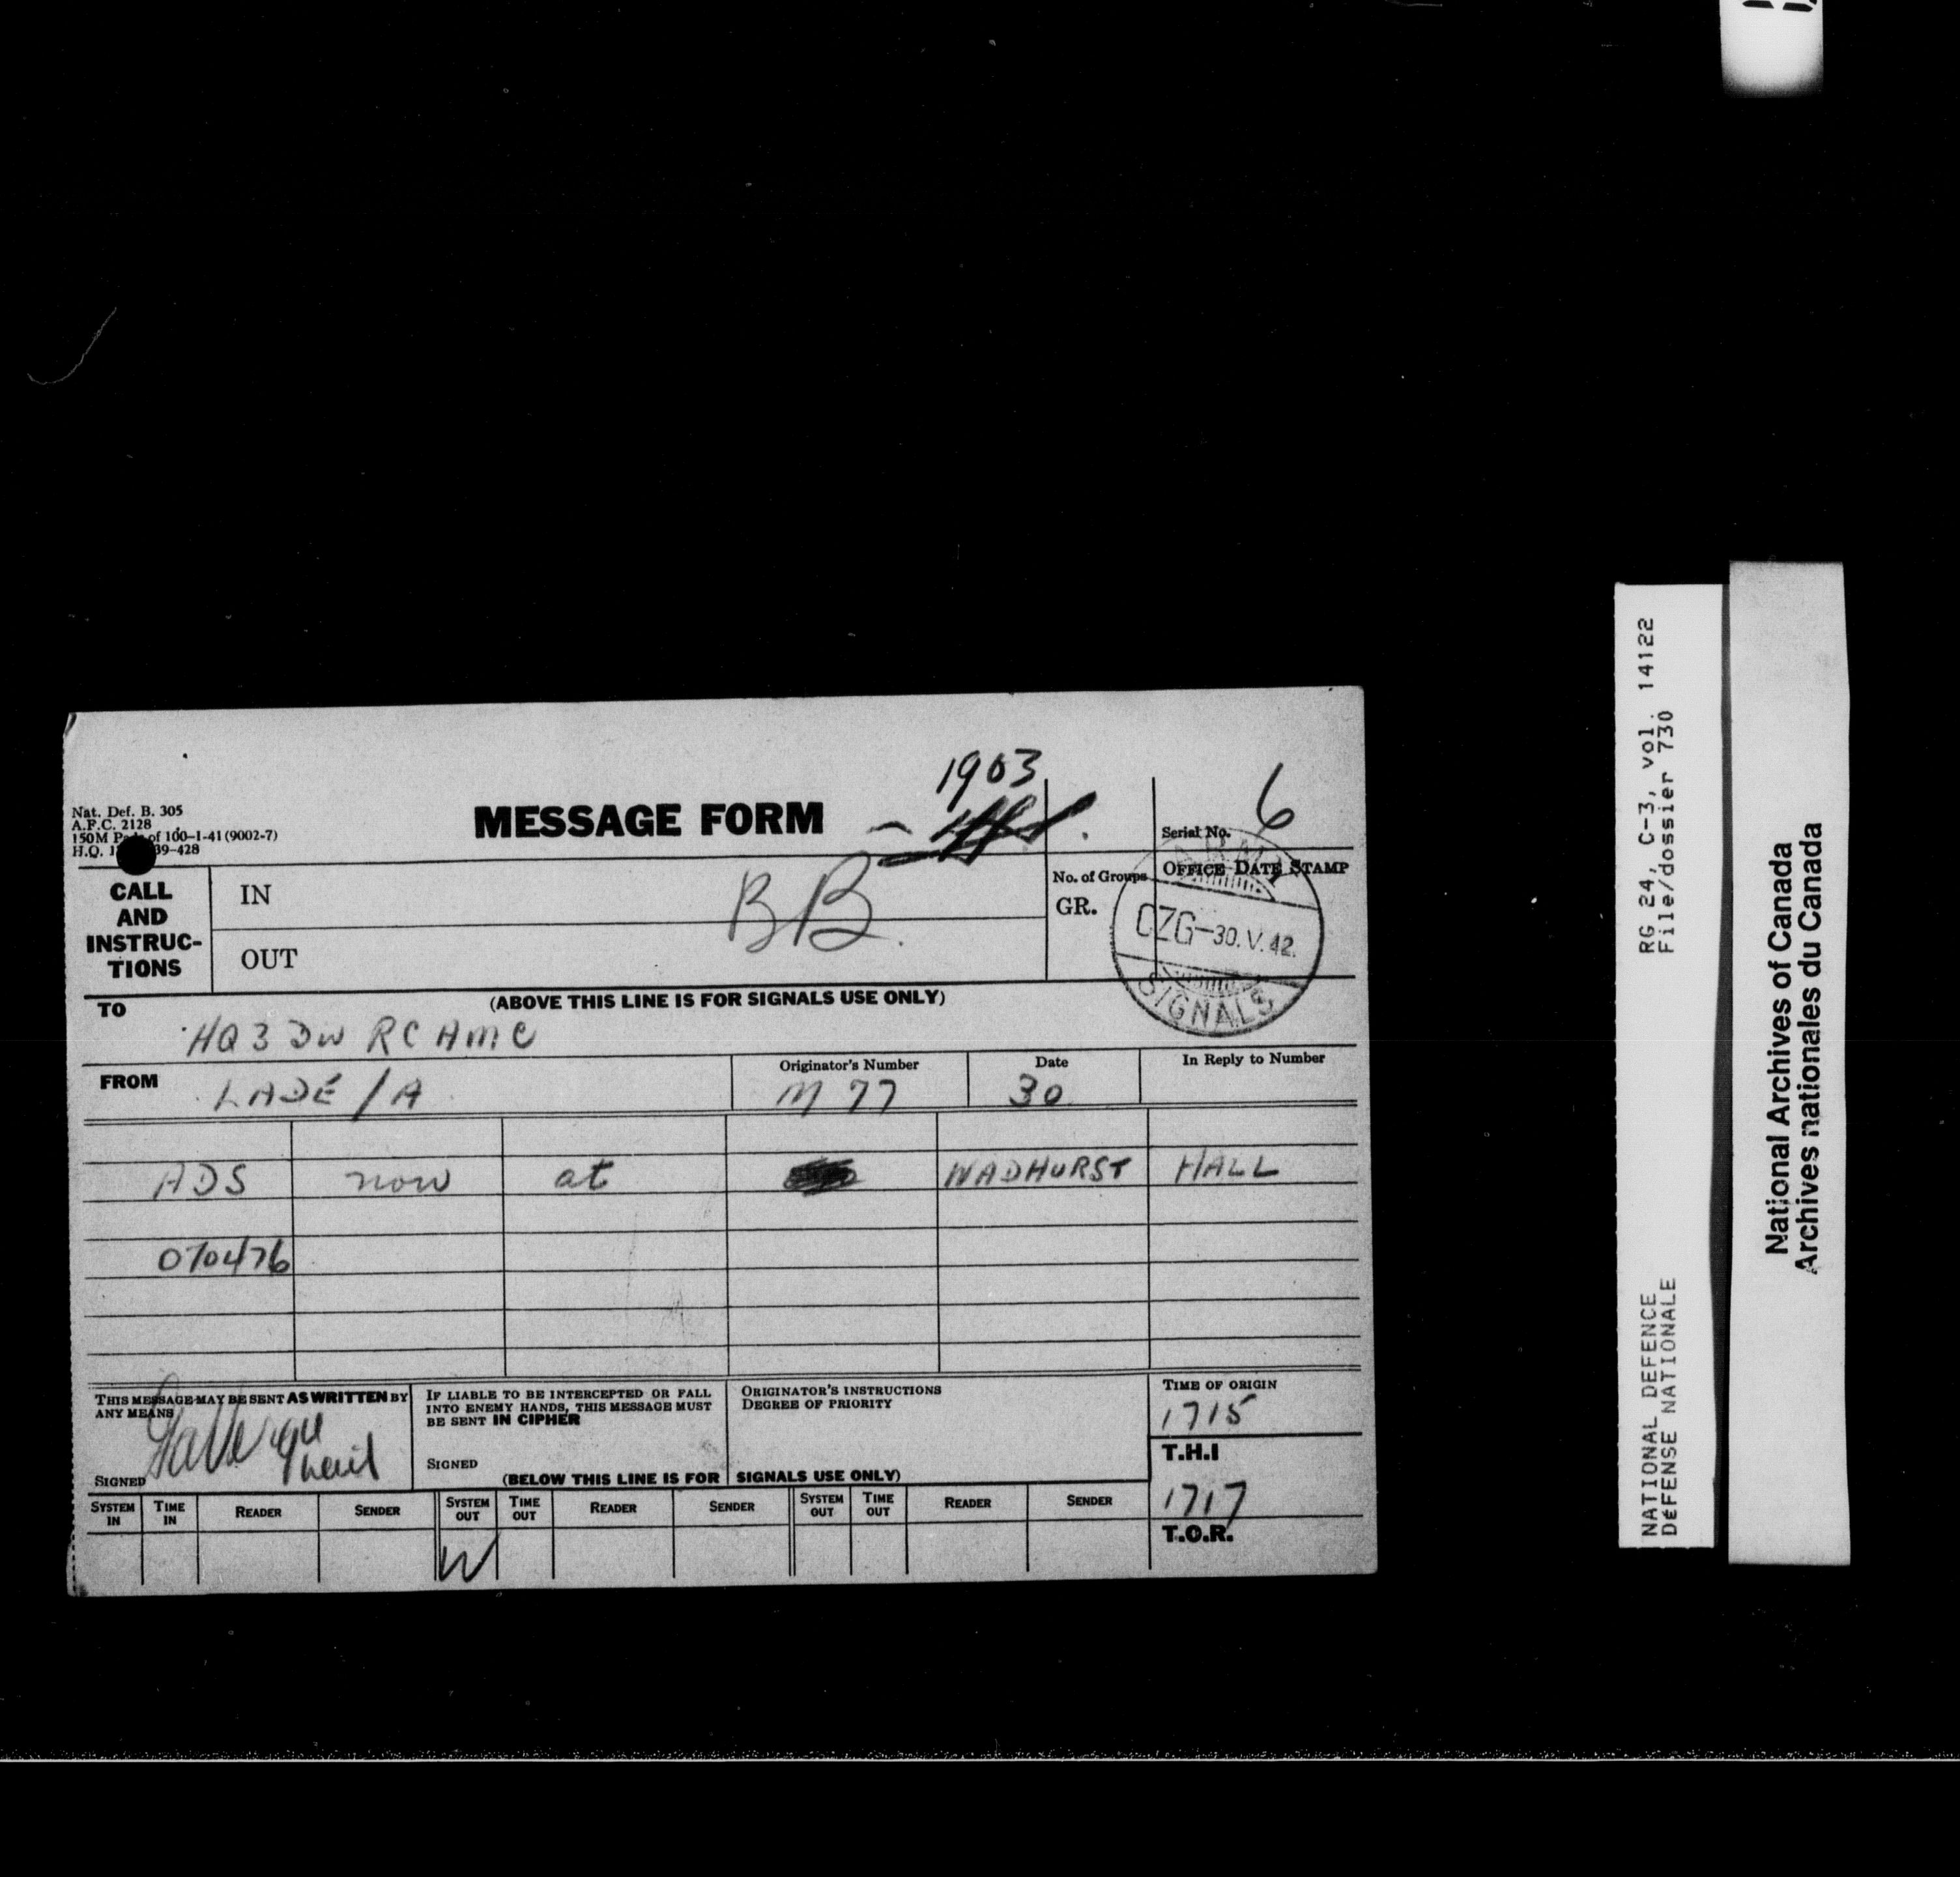 1903
6
Nat. Def. B. 305
A.F.C. 2128
150M of 100-1-41 (9002-7)
H.Q. 39-428
MESSAGE FORM
Serial No.
CALL AND INSTRUC-TIONS
IN
OUT
BB.
No. of Groups
GR.
OFFICE DATE STAMP
ARMY
CZG-30.V.42.
SIGNALS
(ABOVE THIS LINE IS FOR SIGNALS USE ONLY)
TO
HQ 3 DIV RCAMC
FROM
LADE/A
Originator's Number
M 77
Date
30
In Reply to Number
ADS now at WADHURST HALL
070476
THIS MESSAGE MAY BE SENT AS WRITTEN BY
ANY MEANS
SIGNED
IF LIABLE TO BE INTERCEPTED OR FALL
INTO ENEMY HANDS, THIS MESSAGE MUST
BE SENT IN CIPHER
SIGNED
ORIGINATOR'S INSTRUCTIONS
DEGREE OF PRIORITY
TIME OF ORIGIN
1715
T.H.I
1717
T.O.R.
(BELOW THIS LINE IS FOR SIGNALS USE ONLY)
SYSTEM IN TIME IN READER SENDER SYSTEM OUT TIME OUT READER SENDER SYSTEM OUT TIME OUT READER SENDER
W
RG 24, C-3, vol. 14122
File/dossier 730
NATIONAL DEFENCE
DÉFENSE NATIONALE
National Archives of Canada
Archives nationales du Canada